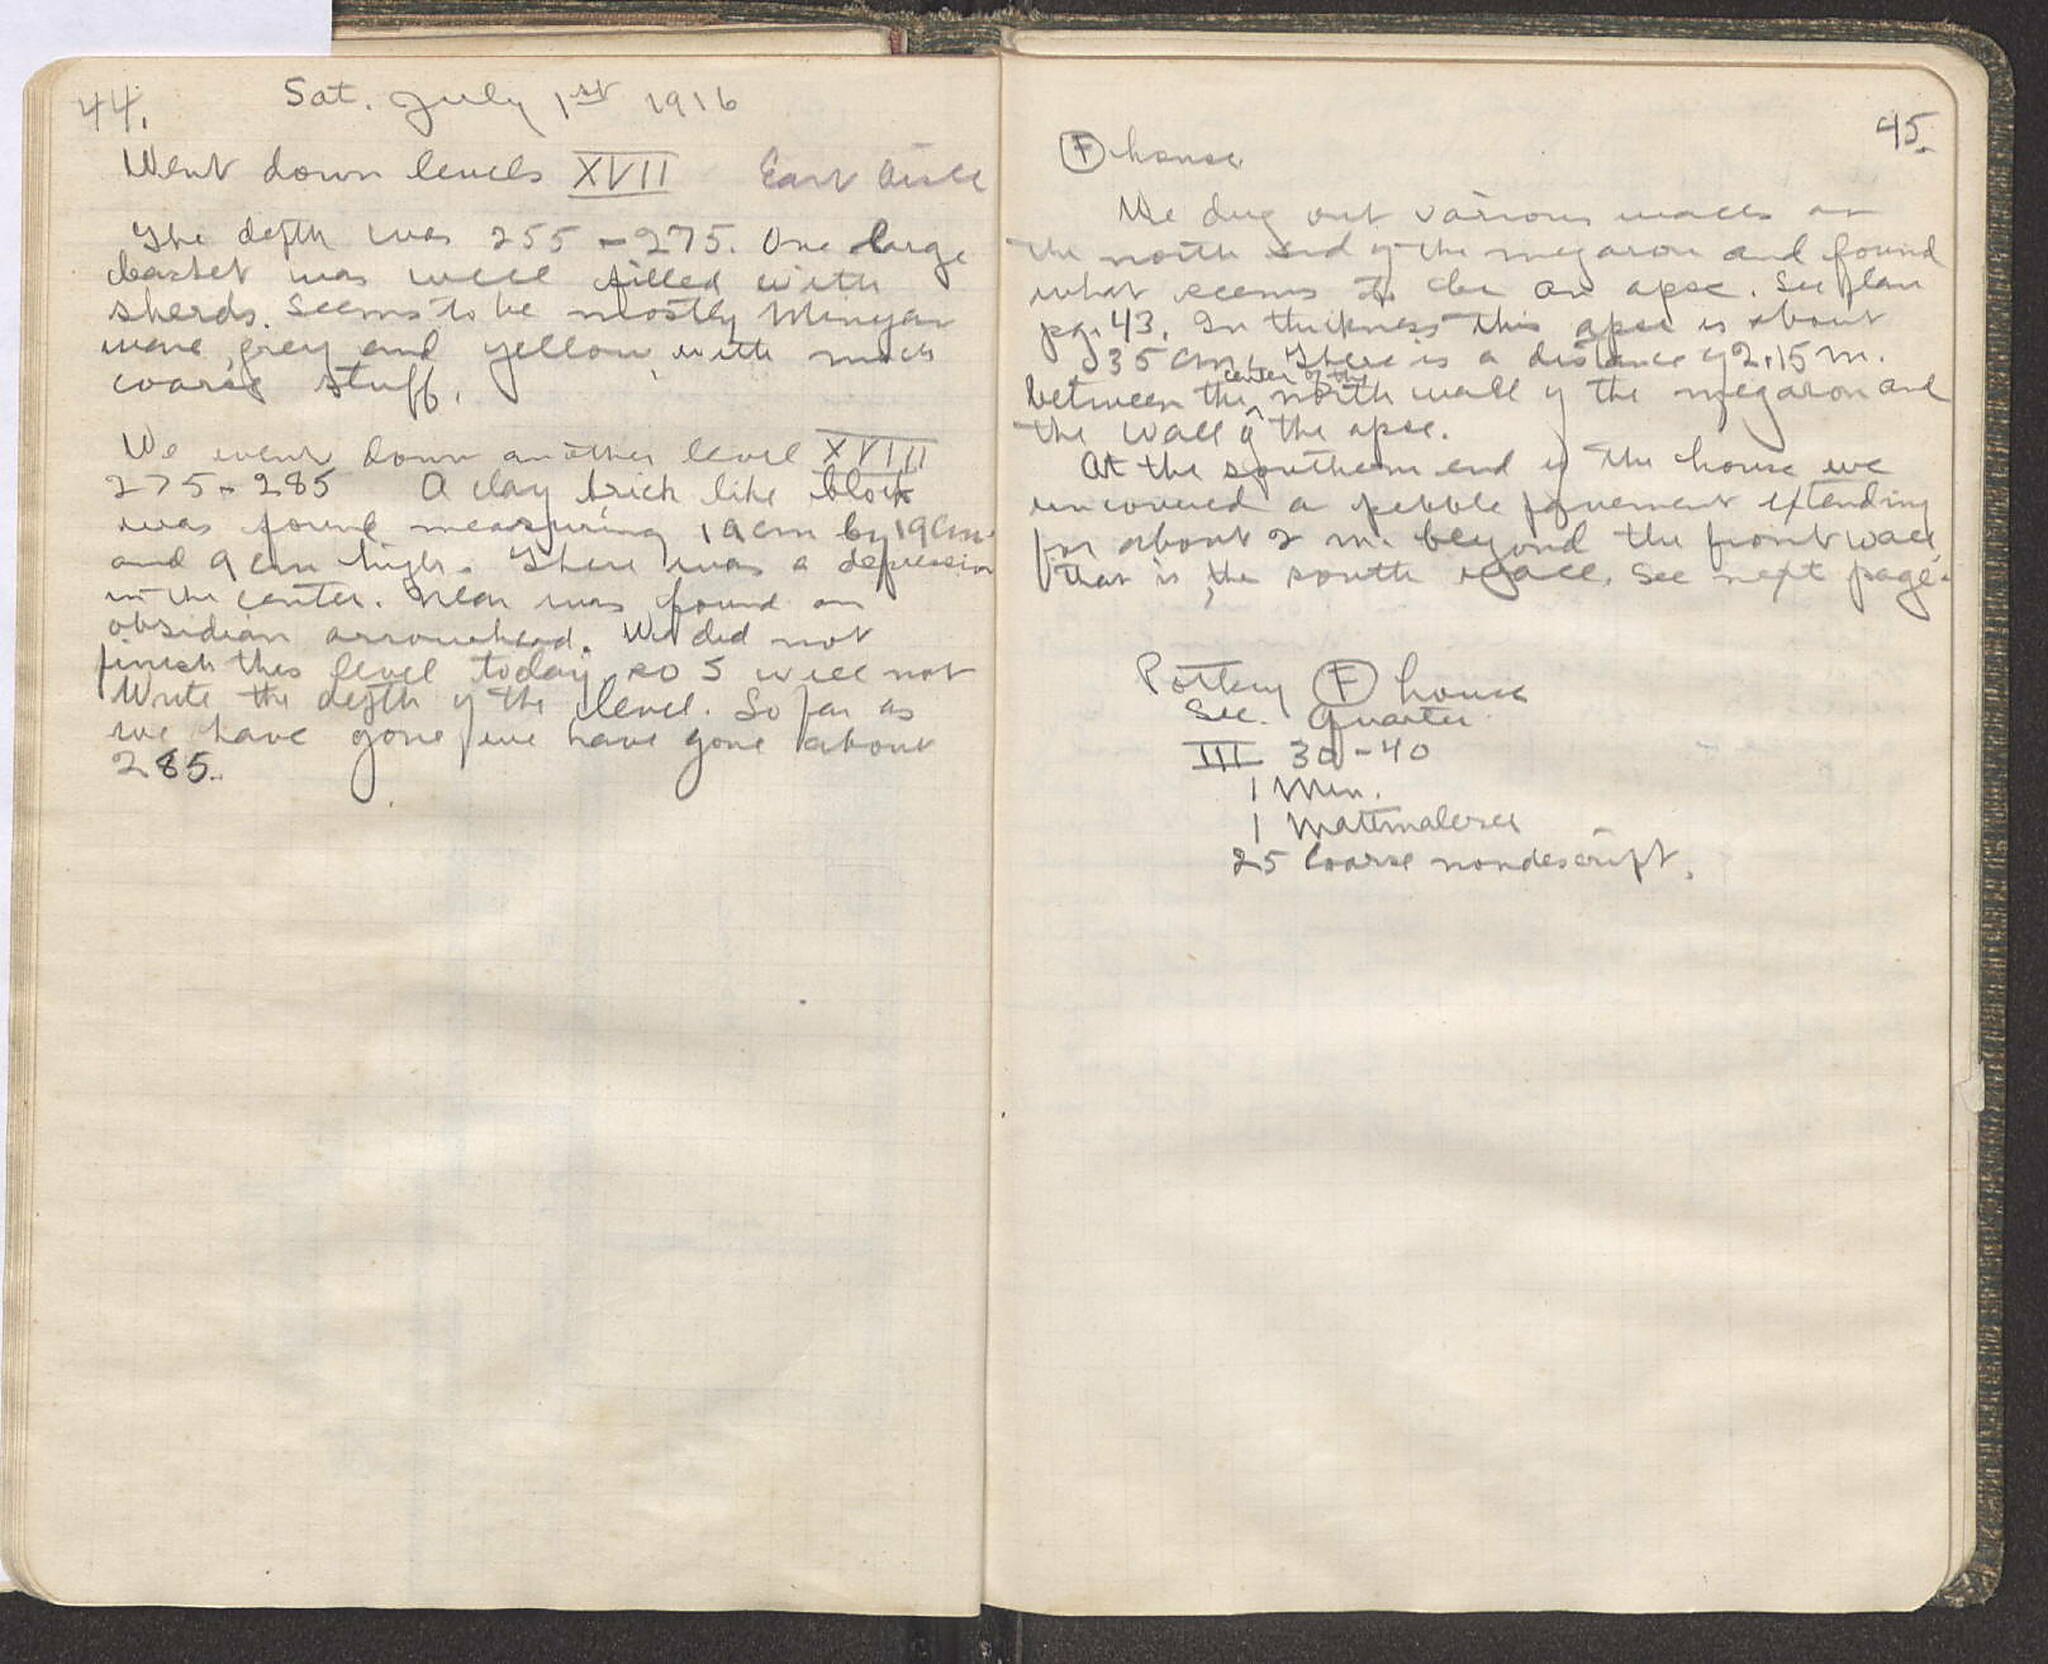 44.
Sat. July 1st 1916
Went down levels XVII East Aisle
The depth was 255 - 275. One large
basket was well filled with
sherds. Seems to be mostly Minyan
ware, grey and yellow, with much
coarse stuff.
We went down another level XVIII
275 - 285 A clay brick like block
was found measuring 19 cm by 19 cm.
and 9 cm high. There was a depression
in the center. Near was found an
obsidian arrowhead. We did not
finish this level today so I will not
write the depth of the level. So far as
we have gone, we have gone about
285.
45.
F house
We dug out various walls at
the north end of the megaron and found
what seems to be an apse. See plan
pg. 43. In thickness this apse is about
35 cm. There is a distance of 2.15 m.
between the center of the north wall of the megaron and
the wall of the apse.
At the southern end of the house we
uncovered a pebble pavement extending
for about 2 m. beyond the front wall,
that is, the south wall. See next page.
Pottery F house
Sec. Quarter
III 30-40
1 Min.
1 Mattmalerei
25 Coarse nondescript.